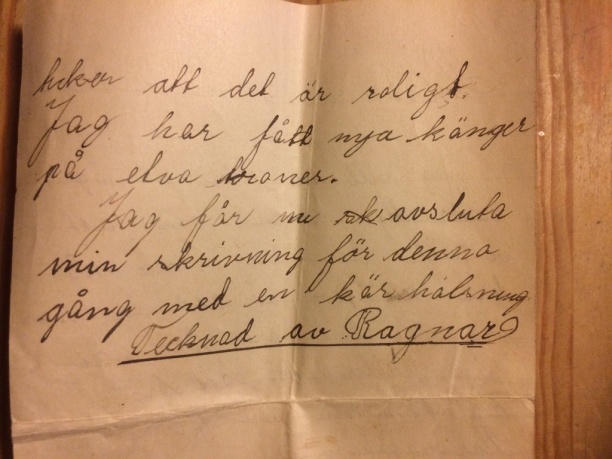 tycker att det är roligt.
Jag har fått nya känger
på elva kroner.
Jag får nu avsluta
min skrivning för denna
gång med en kär hälsning
Tecknad av Ragnar